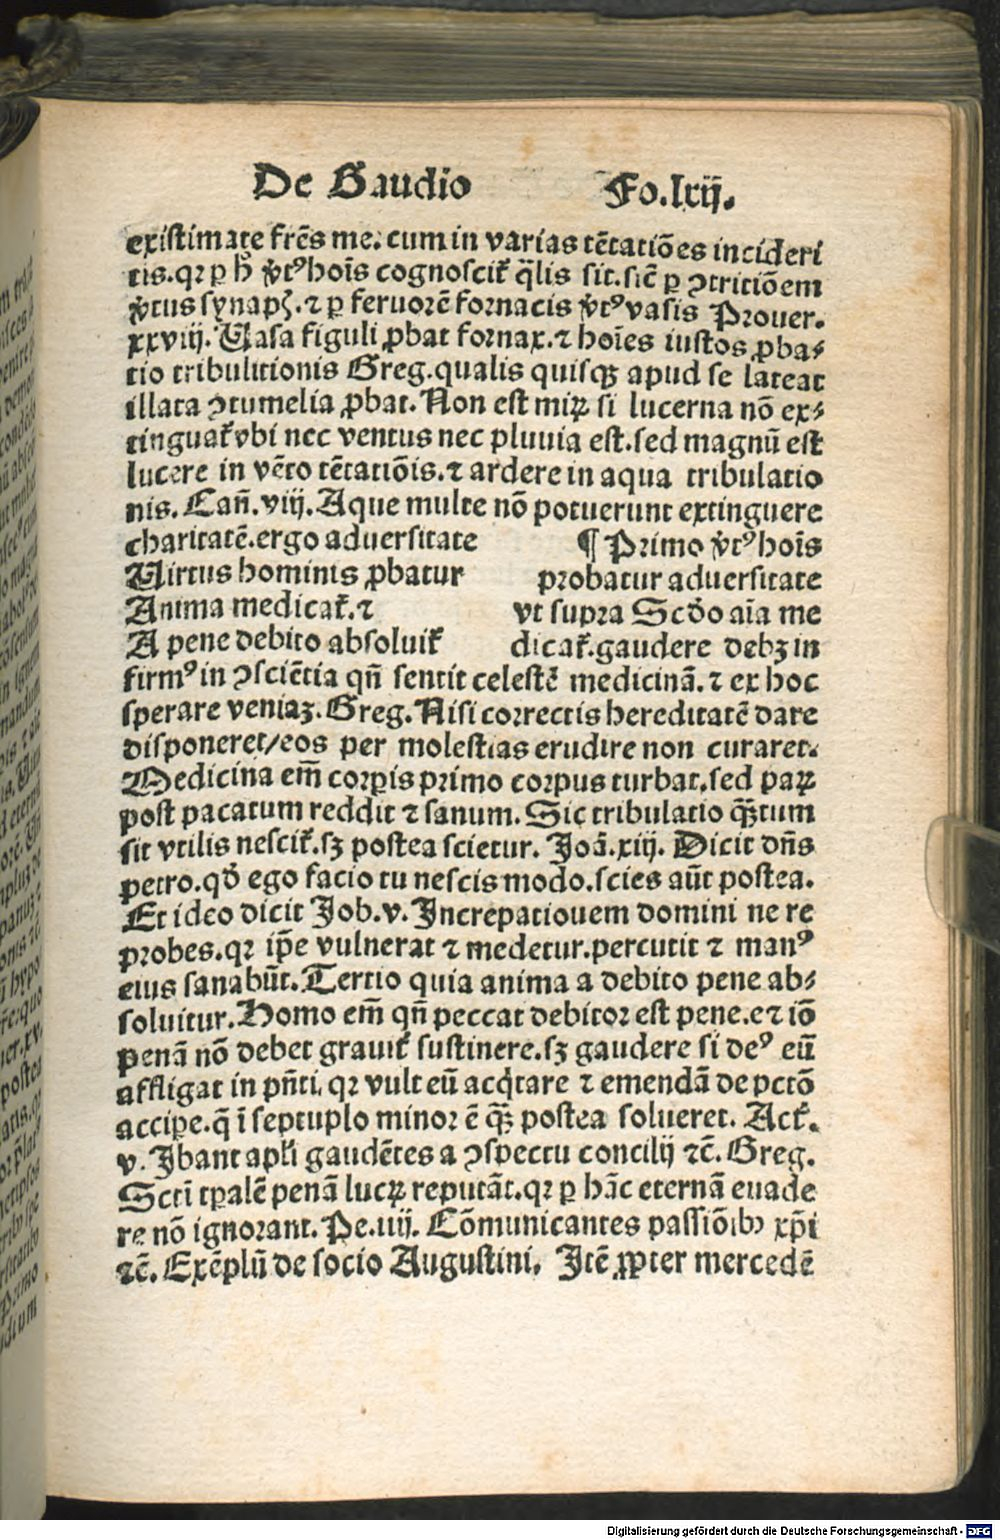 De Gaudio Fo.lxij.
existimate frẽs me. cum in varias tẽtatiões incideri
tis. qꝛ ꝑ h̃ v̾tꝰ hoĩs cognoscit̃ q̃lis sit. sic̃ ꝑ ꝯtritiõem
v̾tus synapꝭ. ⁊ ꝑ feruorẽ fornacis v̾tꝰ vasis Prouer.
xxviij. Uasa figuli ꝓbat fornax. ⁊ hoĩes iustos ꝓba⸗
tio tribulitionis Greg. qualis quisqꝫ apud se lateat
illata ꝯtumelia ꝓbat. Non est miꝝ si lucerna nõ ex⸗
tinguat̃ vbi nec ventus nec pluuia est. sed magnũ est
lucere in vẽto tẽtatiõis. ⁊ ardere in aqua tribulatio
nis. Can̄. viij. Aque multe nõ potuerunt extinguere
charitatẽ. ergo aduersitate ¶ Primo v̾tꝰ hoĩs
Uirtus hominis ꝓbatur probatur aduersitate
Anima medicat̃. ⁊ vt supra Scd̾o aĩa me
A pene debito absoluit̃ dicat̃. gaudere debꝫ in
firmꝰ in ꝯsciẽtia qñ sentit celestẽ medicinã. ⁊ ex hoc
sperare veniaꝫ. Greg. Nisi correctis hereditatẽ dare
disponeret/eos per molestias erudire non curaret.
Medicina em̃ corꝑis primo corpus turbat. sed paꝝ
post pacatum reddit ⁊ sanum. Sic tribulatio qꝫ̃tum
sit vtilis nescit̃. sꝫ postea scietur. Joã. xiij. Dicit dñs
petro. qd̾ ego facio tu nescis modo. scies aũt postea.
Et ideo dicit Job. v. Increpatiouem domini ne re
probes. qꝛ ip̃e vulnerat ⁊ medetur. percutit ⁊ manꝰ
eius sanabũt. Tertio quia anima a debito pene ab⸗
soluitur. Homo em̃ qñ peccat debitoꝛ est pene. et iõ
penã nõ debet grauit̃ sustinere. sꝫ gaudere si deꝰ eũ
affligat in pñti. qꝛ vult eũ acq̇tare ⁊ emendã de pctõ
accipe. q̃ ĩ septuplo minoꝛ ẽ qꝫ̃ postea solueret. Act̃.
v. Ibant apl̃i gaudẽtes a ꝯspectu concilij ⁊c̃. Greg.
Sctĩ tꝑalẽ penã lucꝝ reputãt. qꝛ ꝑ hãc eternã euade
re nõ ignorant. Pe. iiij. Cõmunicantes passiõibꝰ xp̃i
⁊c̃. Exẽplũ de socio Augustini. Itẽ ꝓpter mercedẽ
Digitalisierung gefördert durch die Deutsche Forschungsgemeinschaft - DFG